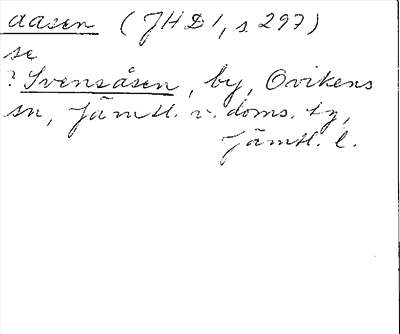 aasen (JHD 1, s 297)
se
? Svensåsen, by, Ovikens
sn, Jämtl. v. doms. tg,
Jämtl. l.